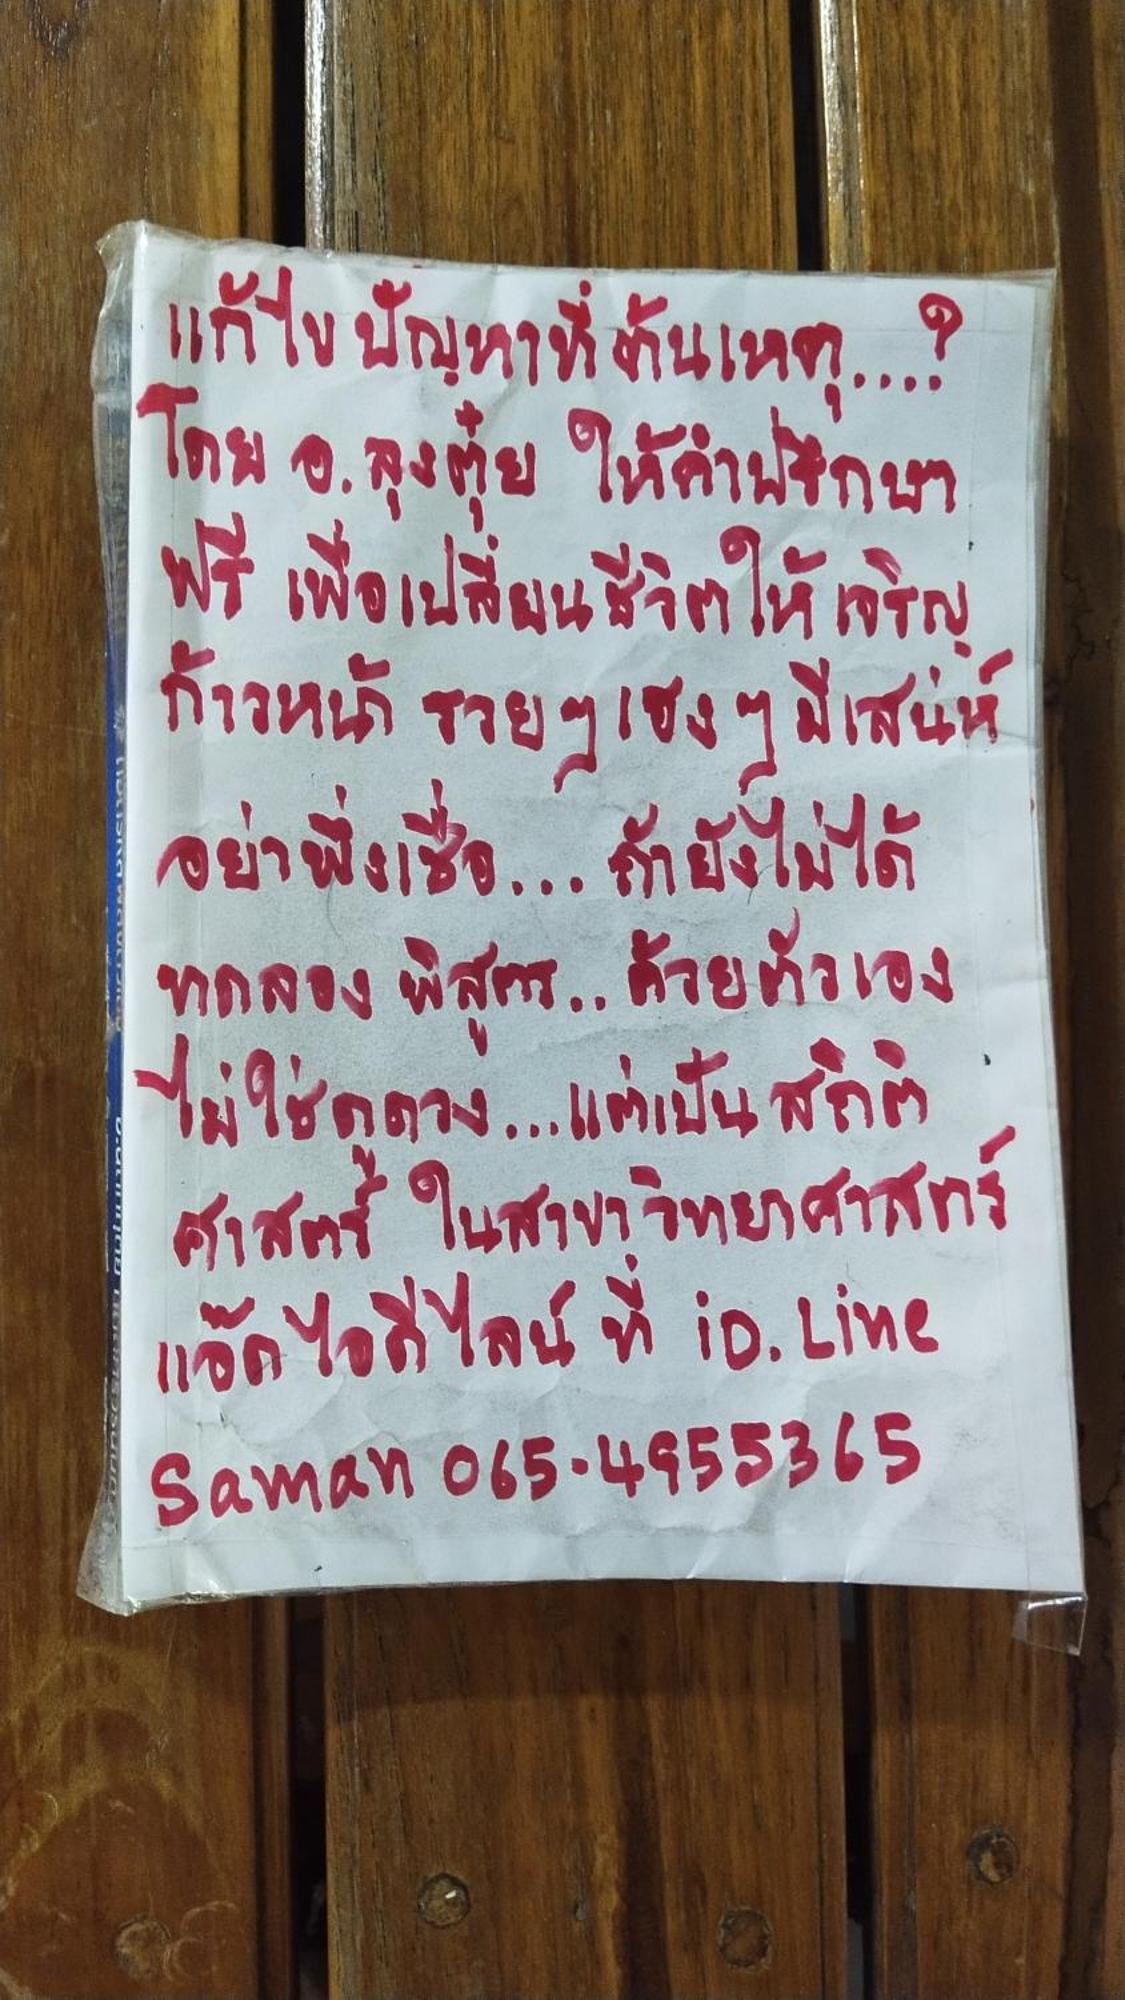 แก้ไขปัญหาที่ต้นเหตุ....?
โดย อ.ลุงตุ๋ย ให้คำปรึกษา
ฟรี เพื่อเปลี่ยนชีวิตให้เจริญ
ก้าวหน้า รวยๆเฮงๆมีเสน่ห์
อย่าพึ่งเชื่อ... ถ้ายังไม่ได้
ทดลอง พิสูตร..ด้วยตัวเอง
ไม่ใช่ดูดวง...แต่เป็น สถิติ
ศาสตร์ ในสาขาวิทยาศาสตร์
แอ๊ดไอดีไลน์ ที่ iD.Line
Saman 065-4955365